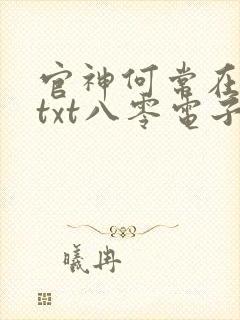 官神何常在
txt八零电子
曦冉